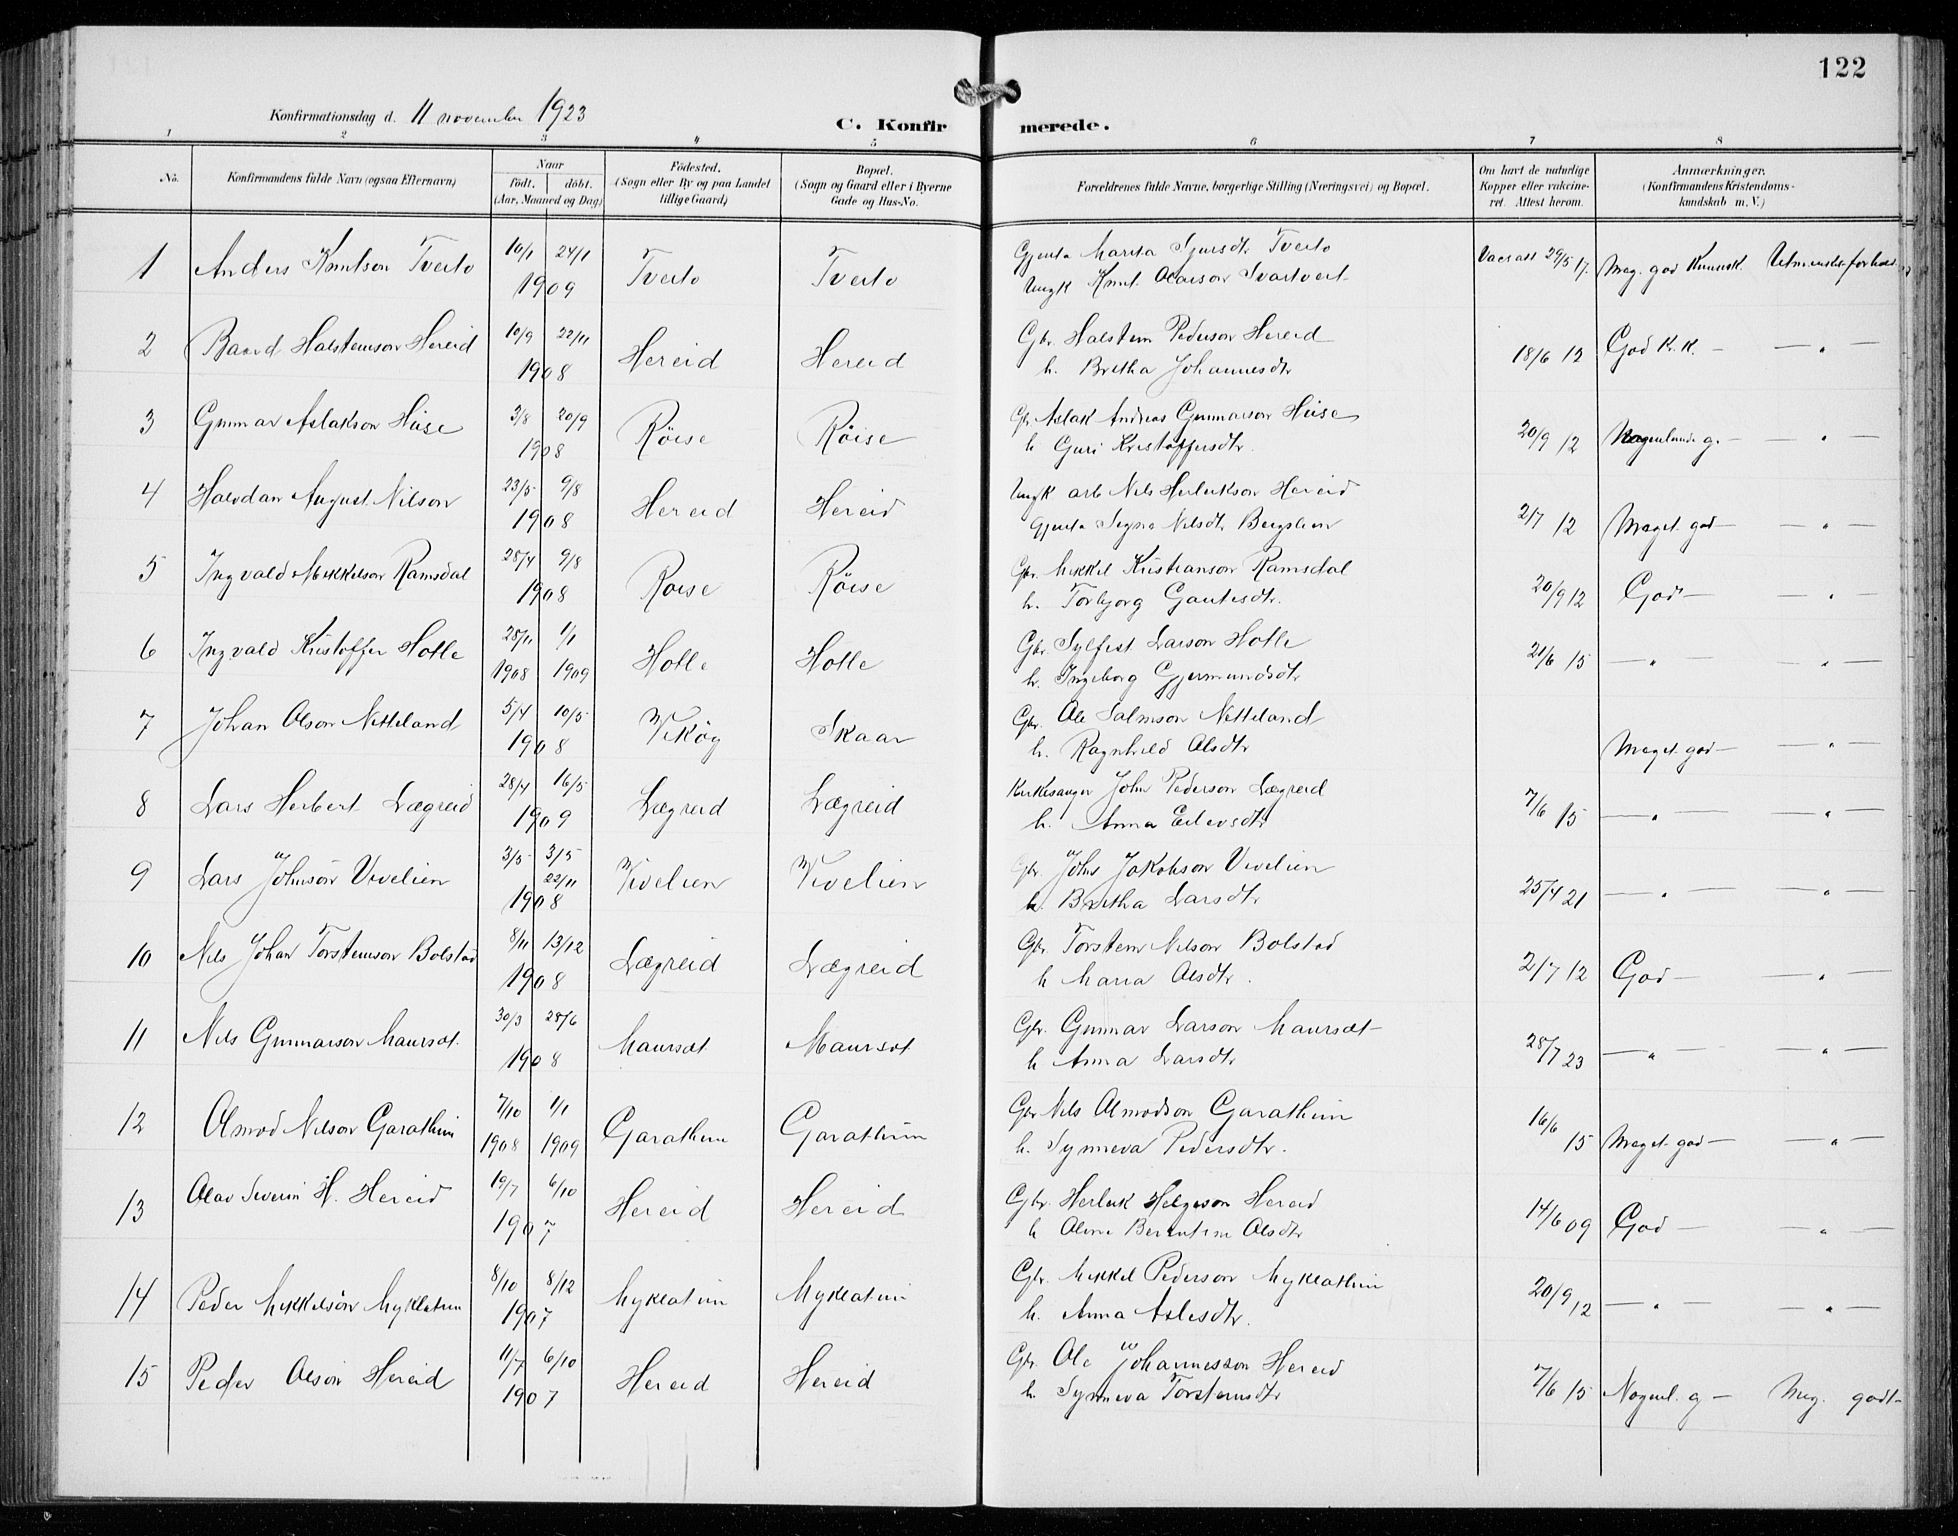 122
Konfirmationsdag d. 11 november 1923
C. Konfirmerede.
1 2 3 4 5 6 7 8
No. Konfirmandens fulde Navn (ogsaa Efternavn) Naar født. døbt. (Aar, Maaned og Dag) Fødested. (Sogn eller By og paa Landet tillige Gaard) Bopæl. (Sogn og Gaard eller i Byerne Gade og Hus-No. Forældrenes fulde Navne, borgerlige Stilling (Næringsvei) og Bopæl. Om havt de naturlige Kopper eller vakcineret. Attest herom. Anmærkninger. (Konfirmandens Kristendomskundskab m. V.)
1 Anders Knutson Tveito 10/1 24/1 1909 Tveito Tveito Gjenta Marita Sjursdtr Tveito Vacs att 29/5 17. Meg. god Kunnsk.
Ungk Knut Olavson Svartveit
2 Baard Halsteinson Hereid 10/9 22/11 1908 Hereid Hereid Gbr. Halstein Pederson Hereid 18/6 12 God K.K. — — " —
h. Britha Johannesdtr
3 Gunnar Aslakson Húse 3/8 20/9 1908 Röise Röise Gbr Aslak Andreas Gunnarson Húse 20/9 12 Nogenlunde g. — — " —
h Guri Kristoffersdtr.
4 Halvdan August Nilson 23/5 9/8 1908 Hereid Hereid Ungk arb Nils Herleikson Hereid 2/7 12 Meget god — — " —
Gjenta Signe Nilsdtr
5 Ingvald Mikkelson Ramsdal 28/4 9/8 1908 Röise Röise Gbr. Mikkel Kristianson Ramsdal 20/9 12 God — — " —
h. Torbjorg Gautesdtr.
6 Ingvald Kristoffer Holle 28/11 1908 1/1 1909 Holle Holle Gbr Sylfest Larson Holle 21/6 15 — " — — " —
h. Ingeborg Gjermundsdtr
7 Johan Olson Netteland 5/4 10/5 1908 Vikøy Skaar Gbr. Ole Salmson Netteland Meget god — — " —
h. Ragnhild Olsdtr
8 Lars Herbert Lægreid 28/4 16/5 1909 Lægreid Lægreid Kirkesanger John Pederson Lægreid 7/6 15 — " — — " —
h. Anna Eilevsdtr
9 Lars Johnson Vivelien 3/5 3/5 22/11 1908 Vivelien Vivelien Gbr. John Jakobson Vivelien 25/4 21 — " — — " —
h. Britha Larsdtr
10 Nils Johan Torsteinson Bolstad 8/11 13/12 1908 Lægreid Lægreid Gbr. Torstein Nilson Bolstad 2/7 12 God — — " —
h Maria Olsdtr.
11 Nils Gunnarson Maurset 30/3 28/6 1908 Maurset Maurset Gbr. Gunnar Larson Maurset 28/7 23 — " — — " —
h Anna Larsdtr
12 Olmod Nilson Garathun 7/10 1908 1/1 1909 Garathun Garathun Gbr Nils Olmodson Garathun 16/6 15 Meget god — — " —
h. Synneva Pedersdtr.
13 Olav Severin H. Hereid 19/7 6/10 1907 Hereid Hereid Gbr. Herleik Helgeson Hereid 14/6 09 God — — " —
h Oline Berentine Olsdtr
14 Peder Mikkelson Myklatun 8/10 8/12 1907 Myklatun Myklatun Gbr. Mikkel Pederson Myklathun 20/9 12 — " — — " —
h. Anna Aslesdtr.
15 Peder Olson Hereid 11/7 6/10 1907 Hereid Hereid Gbr. Ole Johannesson Hereid 7/6 15 Nogenl. g — Meg. godt
h. Synneva Torsteinsdtr